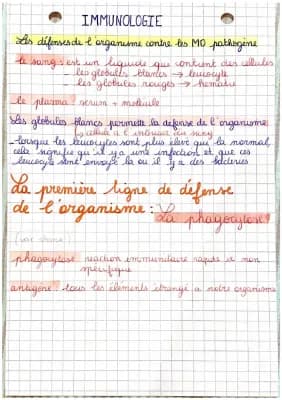 IMMUNOLOGIE
Les défenses de l'organisme contre les MO pathogène
le sang : est un liquide qui contient des cellules
- les globules blancs → leucocyte
- les globules rouges → hématie
le plasma : sérum + molécule
Les globules blancs permette la défense de l'organisme
↳ cellule à l'intérieur du sang
- lorsque les leucocytes sont plus élevé que la normal,
cela signifie qu'il y a une infection et que ces
leucocyte sont envoyé la ou il y a des bactéries
La première ligne de défense
de l'organisme : La phagocytose
phagocytose : réaction immunitaire rapide et non
spécifique
antigène : tous les éléments étrangé a notre organisme